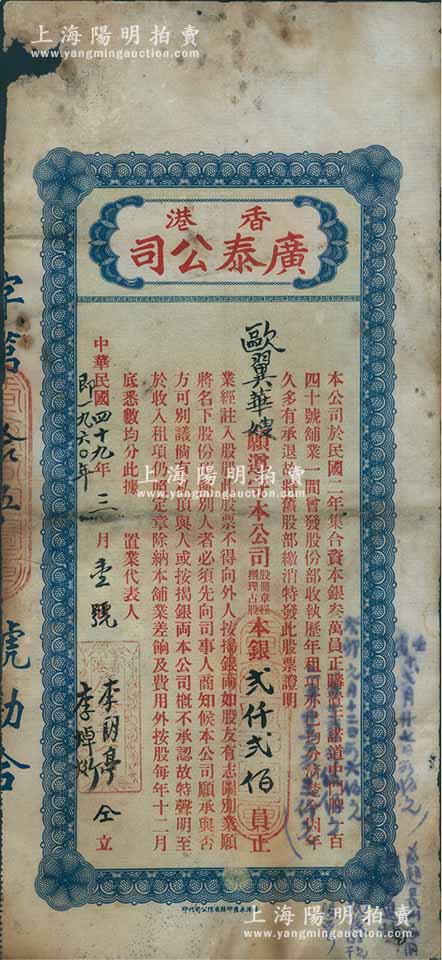 上海陽明拍賣
www.yangmingauction.com
香港
廣泰公司
本公司於民國二年集合資本銀叁萬員正購置干諾道中門牌一百
四十號舖業一間曾發股份部收執歷年租項亦已均分清楚今因年
久多有承退故將舊股部繳消特發此股票證明
歐翼華嫂願濟本公司股開章程辦理占股本銀弍仟弍佰員正
業經註入股部此股票不得向外人按揭銀両如股友有志圖別業願
將名下股份轉讓別人者必須先向司事人商知候本公司願承與否
方可別議倘有私頂與人或按揭銀両本公司概不承認故特聲明至
於收入租項仍照定章除納本舖業差餉及費用外按股每年十二月
底悉數均分此據
置業代表人
李朗亭
李焯
仝立
中華民國四十九年三月壹號
即一九六〇年
字第拾五號
上海陽明拍賣
www.yangmingauction.com